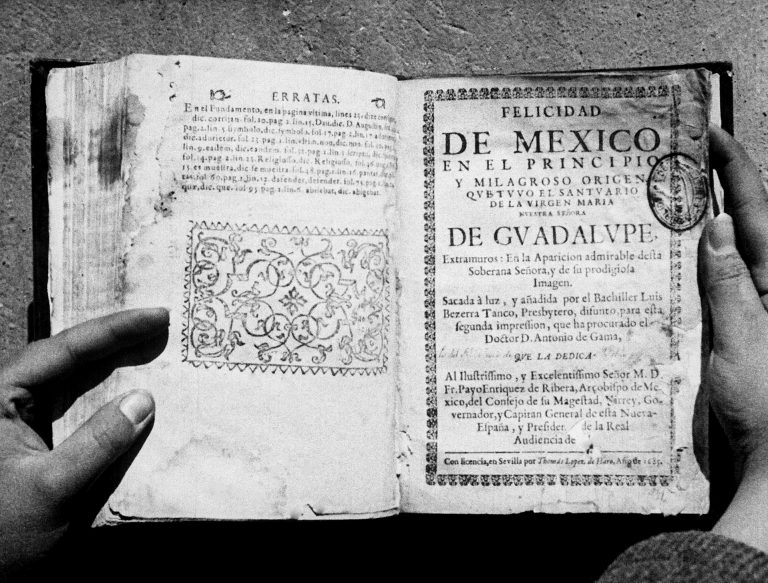 ERRATAS.
En el Fundamento, en la pagina vltima, linea 25. dize
dic. corrijan. fol. 10. pag. 2. lin. 15. Dau. dic. D. Augustin,
pag. 2. lin. 5 simbalo, dic. symbolo. fol. 17. pag. 2. lin. 17
dic.
lin. 9. eadem, dic. eandem.
pag. 2. lin. 22. Religiusso, dic. Religioso,
15. es muestra, dic se muestra.
pag. 2. lin. 12. defender, defender.
que, dic. que. fol 95 pag. 2. lin. 6. abriebat, dic. abigebat.
FELICIDAD
DE MEXICO
EN EL PRINCIPIO
Y MILAGROSO ORIGEN
QVE TVVO EL SANTVARIO
DE LA VIRGEN MARIA
NVESTRA SEÑORA
DE GVADALVPE,
Extramuros: En la Aparicion admirable desta
Soberana Señora, y de su prodigiosa
Imagen.
Sacada à luz, y añadida por el Bachiller Luis
Bezerra Tanco, Presbytero, difunto, para esta
segunda impression, que ha procurado el
Doctor D. Antonio de Gama,
QVE LA DEDICA
Al Ilustrissimo, y Excelentissimo Señor M. D.
Fr. Payo Enriquez de Ribera, Arçobispo de Me-
xico, del Consejo de su Magestad, Virrey, Go-
vernador, y Capitan General de esta Nueva-
España, y Presider de la Real
Audiencia de
Con licencia, en Sevilla por Thomàs Lopez de Haro, Año de 1685.